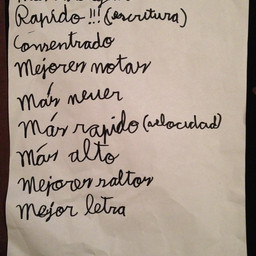 Rapido!!! (escritura)
Consentrado
Mejores notas
Más
Más rapido (velocidad)
Más alto
Mejores saltos
Mejor letra